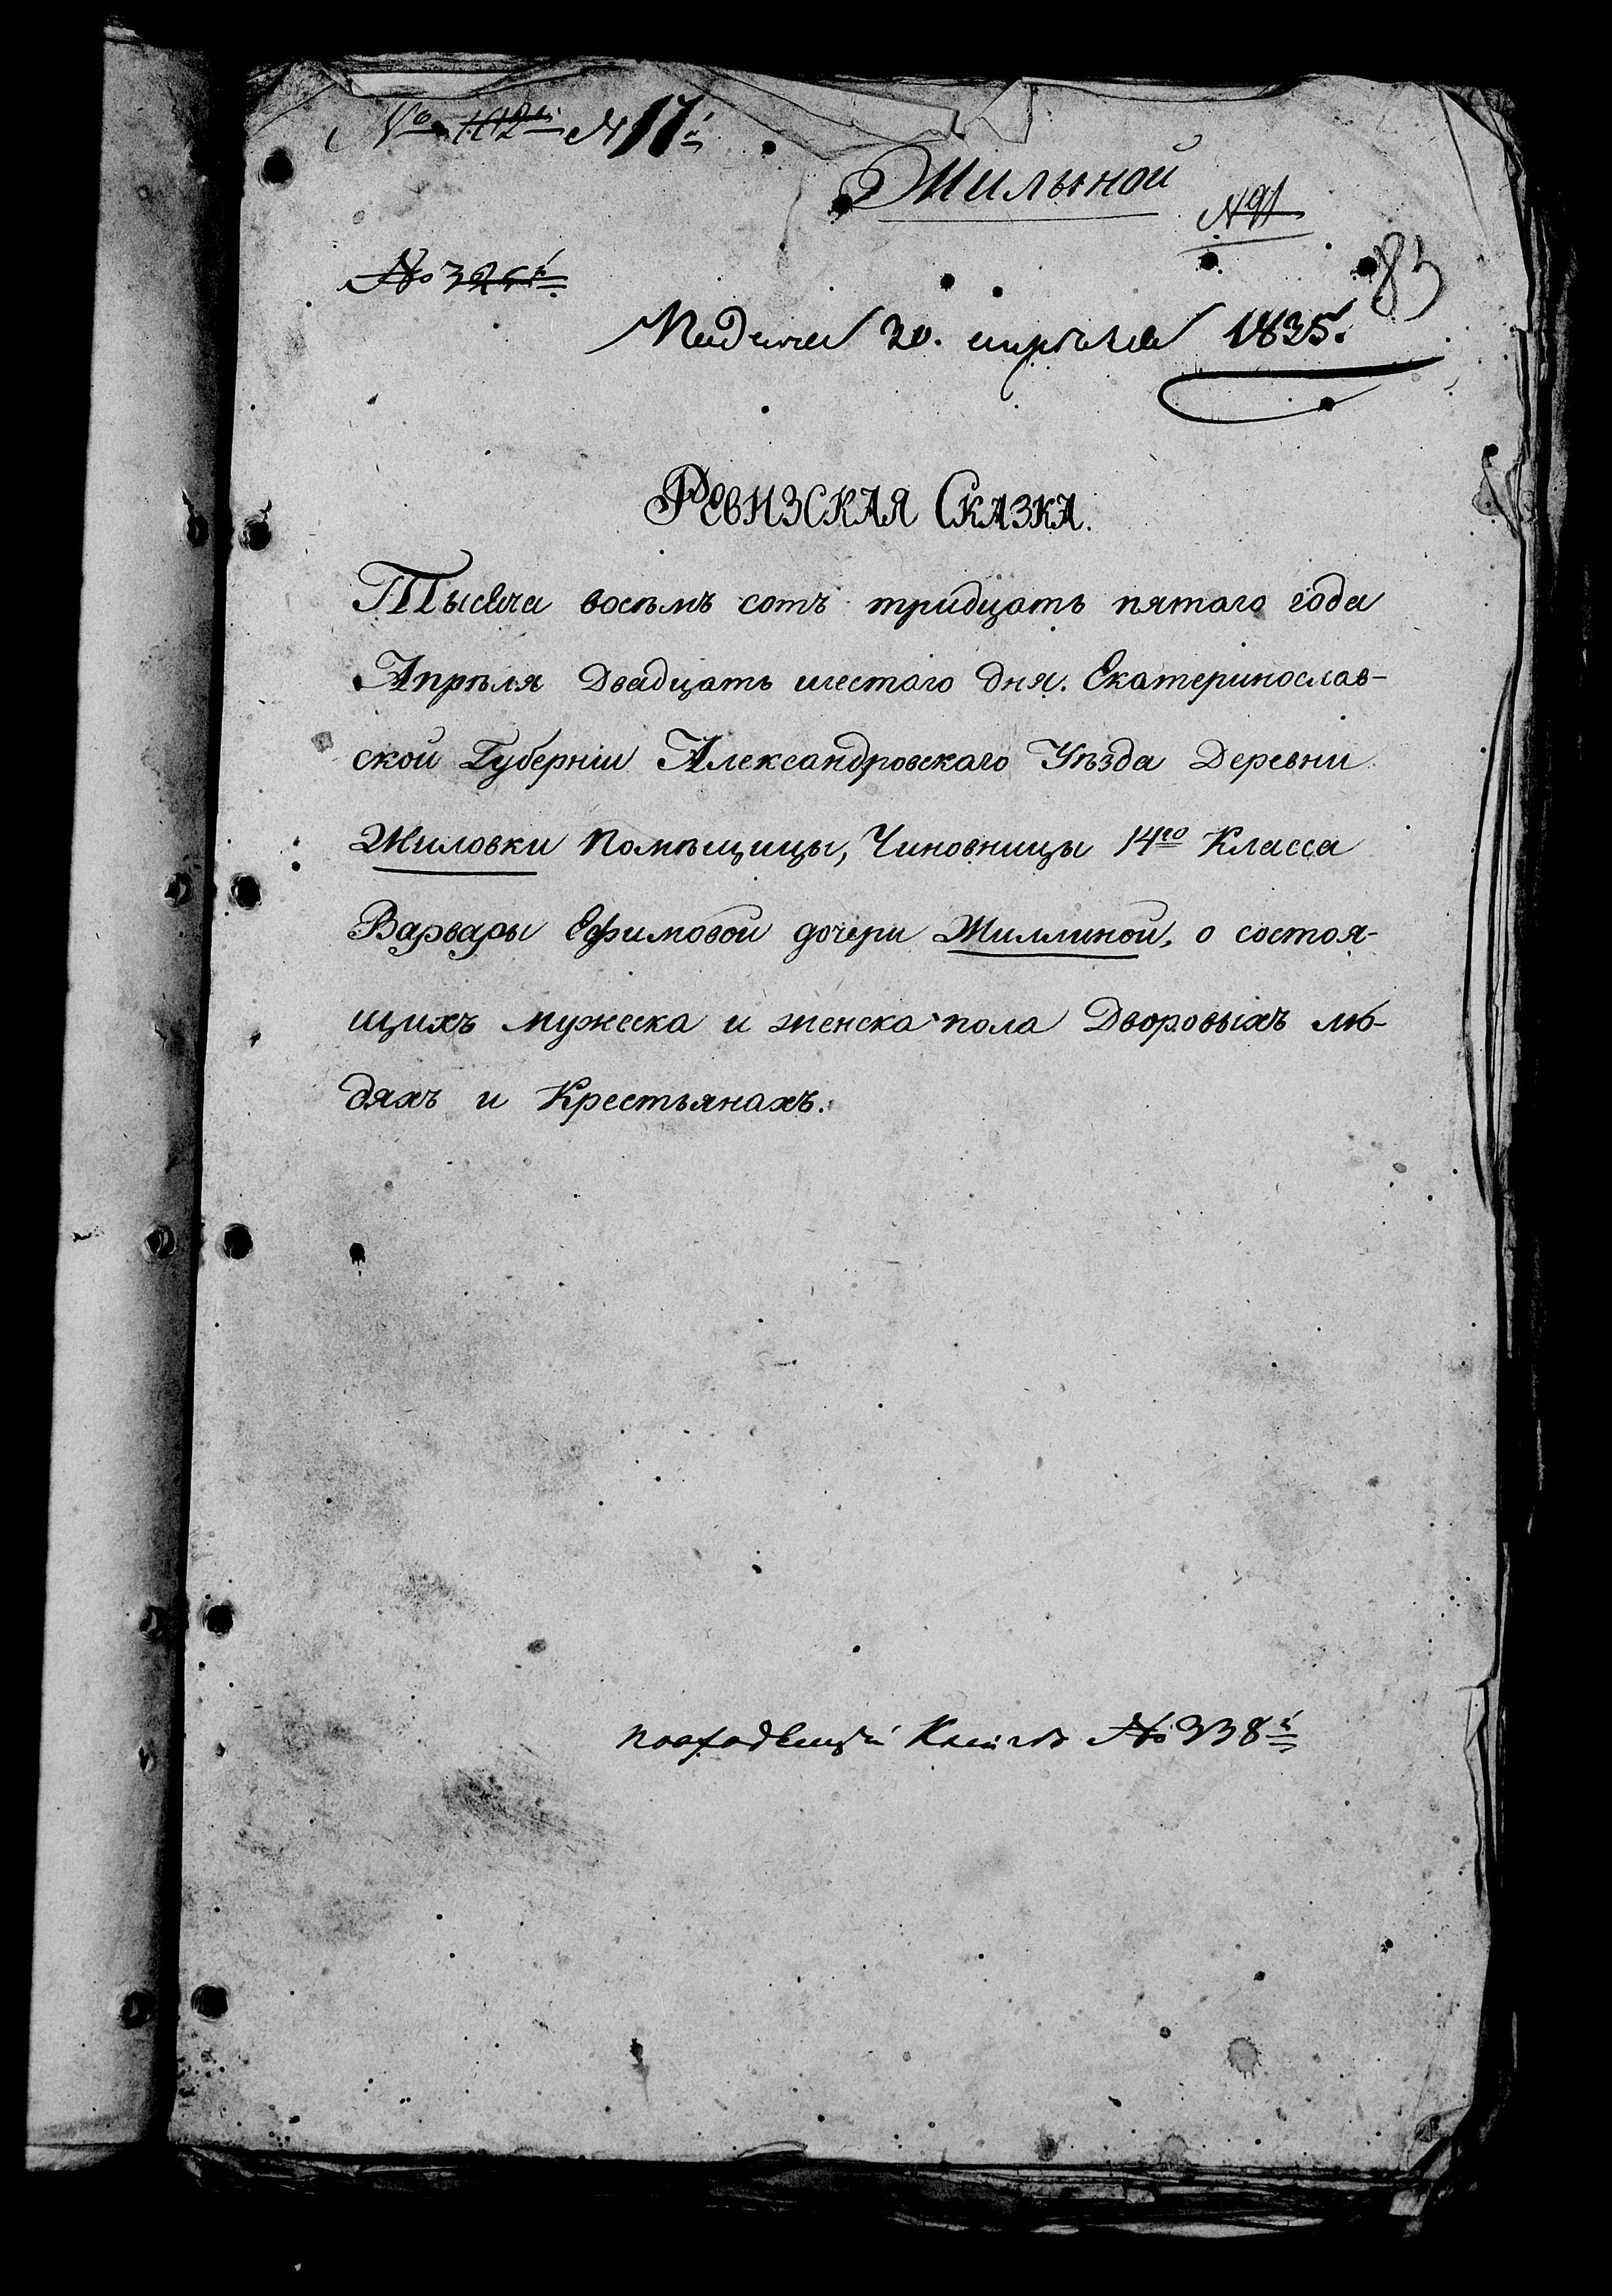 № 102й № 17й
Жильиной
№ 91
83
Подана 30. апрѣля 1835.
Ревизская Сказка.
Тысяча восѣмъ сотъ тридцать пятаго года
Апрѣля Двадцать шестаго дня. Екатеринослав-
ской Губерніи Александровскаго Уѣзда Деревни
Жиловки Помѣщицы, Чиновницы 14го Класса
Варвары Ефимовой дочери Жиллиной, о состоя-
щихъ мужеска и женска пола Дворовыхъ лю-
дяхъ и Крестьянахъ.
по входящей Книгѣ № 338й